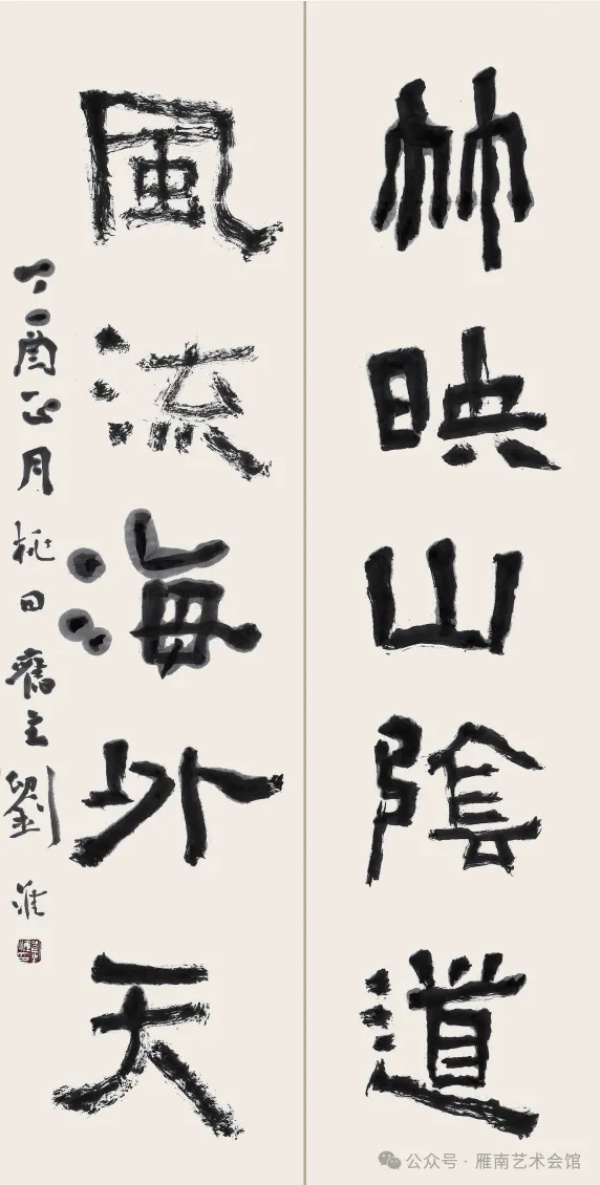 竹映山陰道
風流海外天
丁酉正月桃日舊主劉淮
公众号·雁南艺术会馆